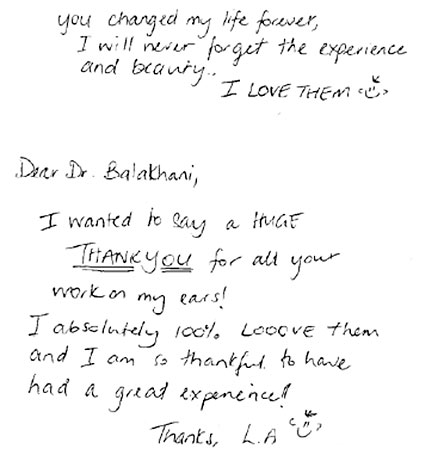 you changed my life forever,
I will never forget the experience
and beauty..
I LOVE THEM
Dear Dr. Balakhani,
I wanted to say a HUGE
THANKYOU for all your
work on my ears!
I absolutely 100% LOOOVE them
and I am so thankful to have
had a great experience!!
Thanks, L.A